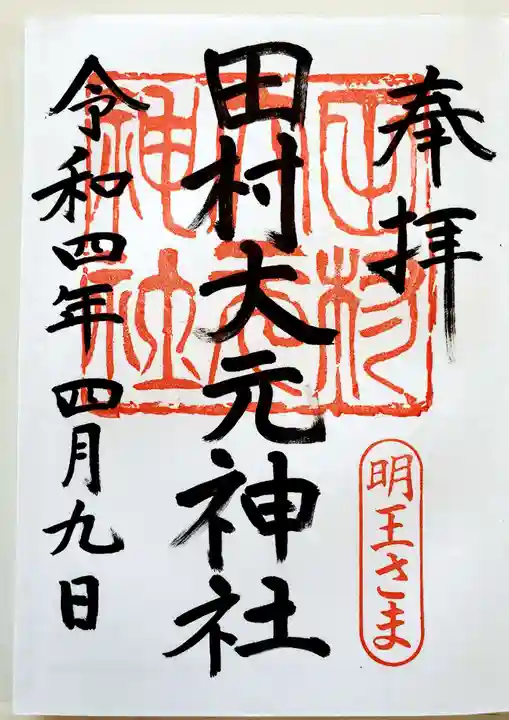 奉拝
明王さま
田村大元神社
令和四年四月九日
田村
大元
神社